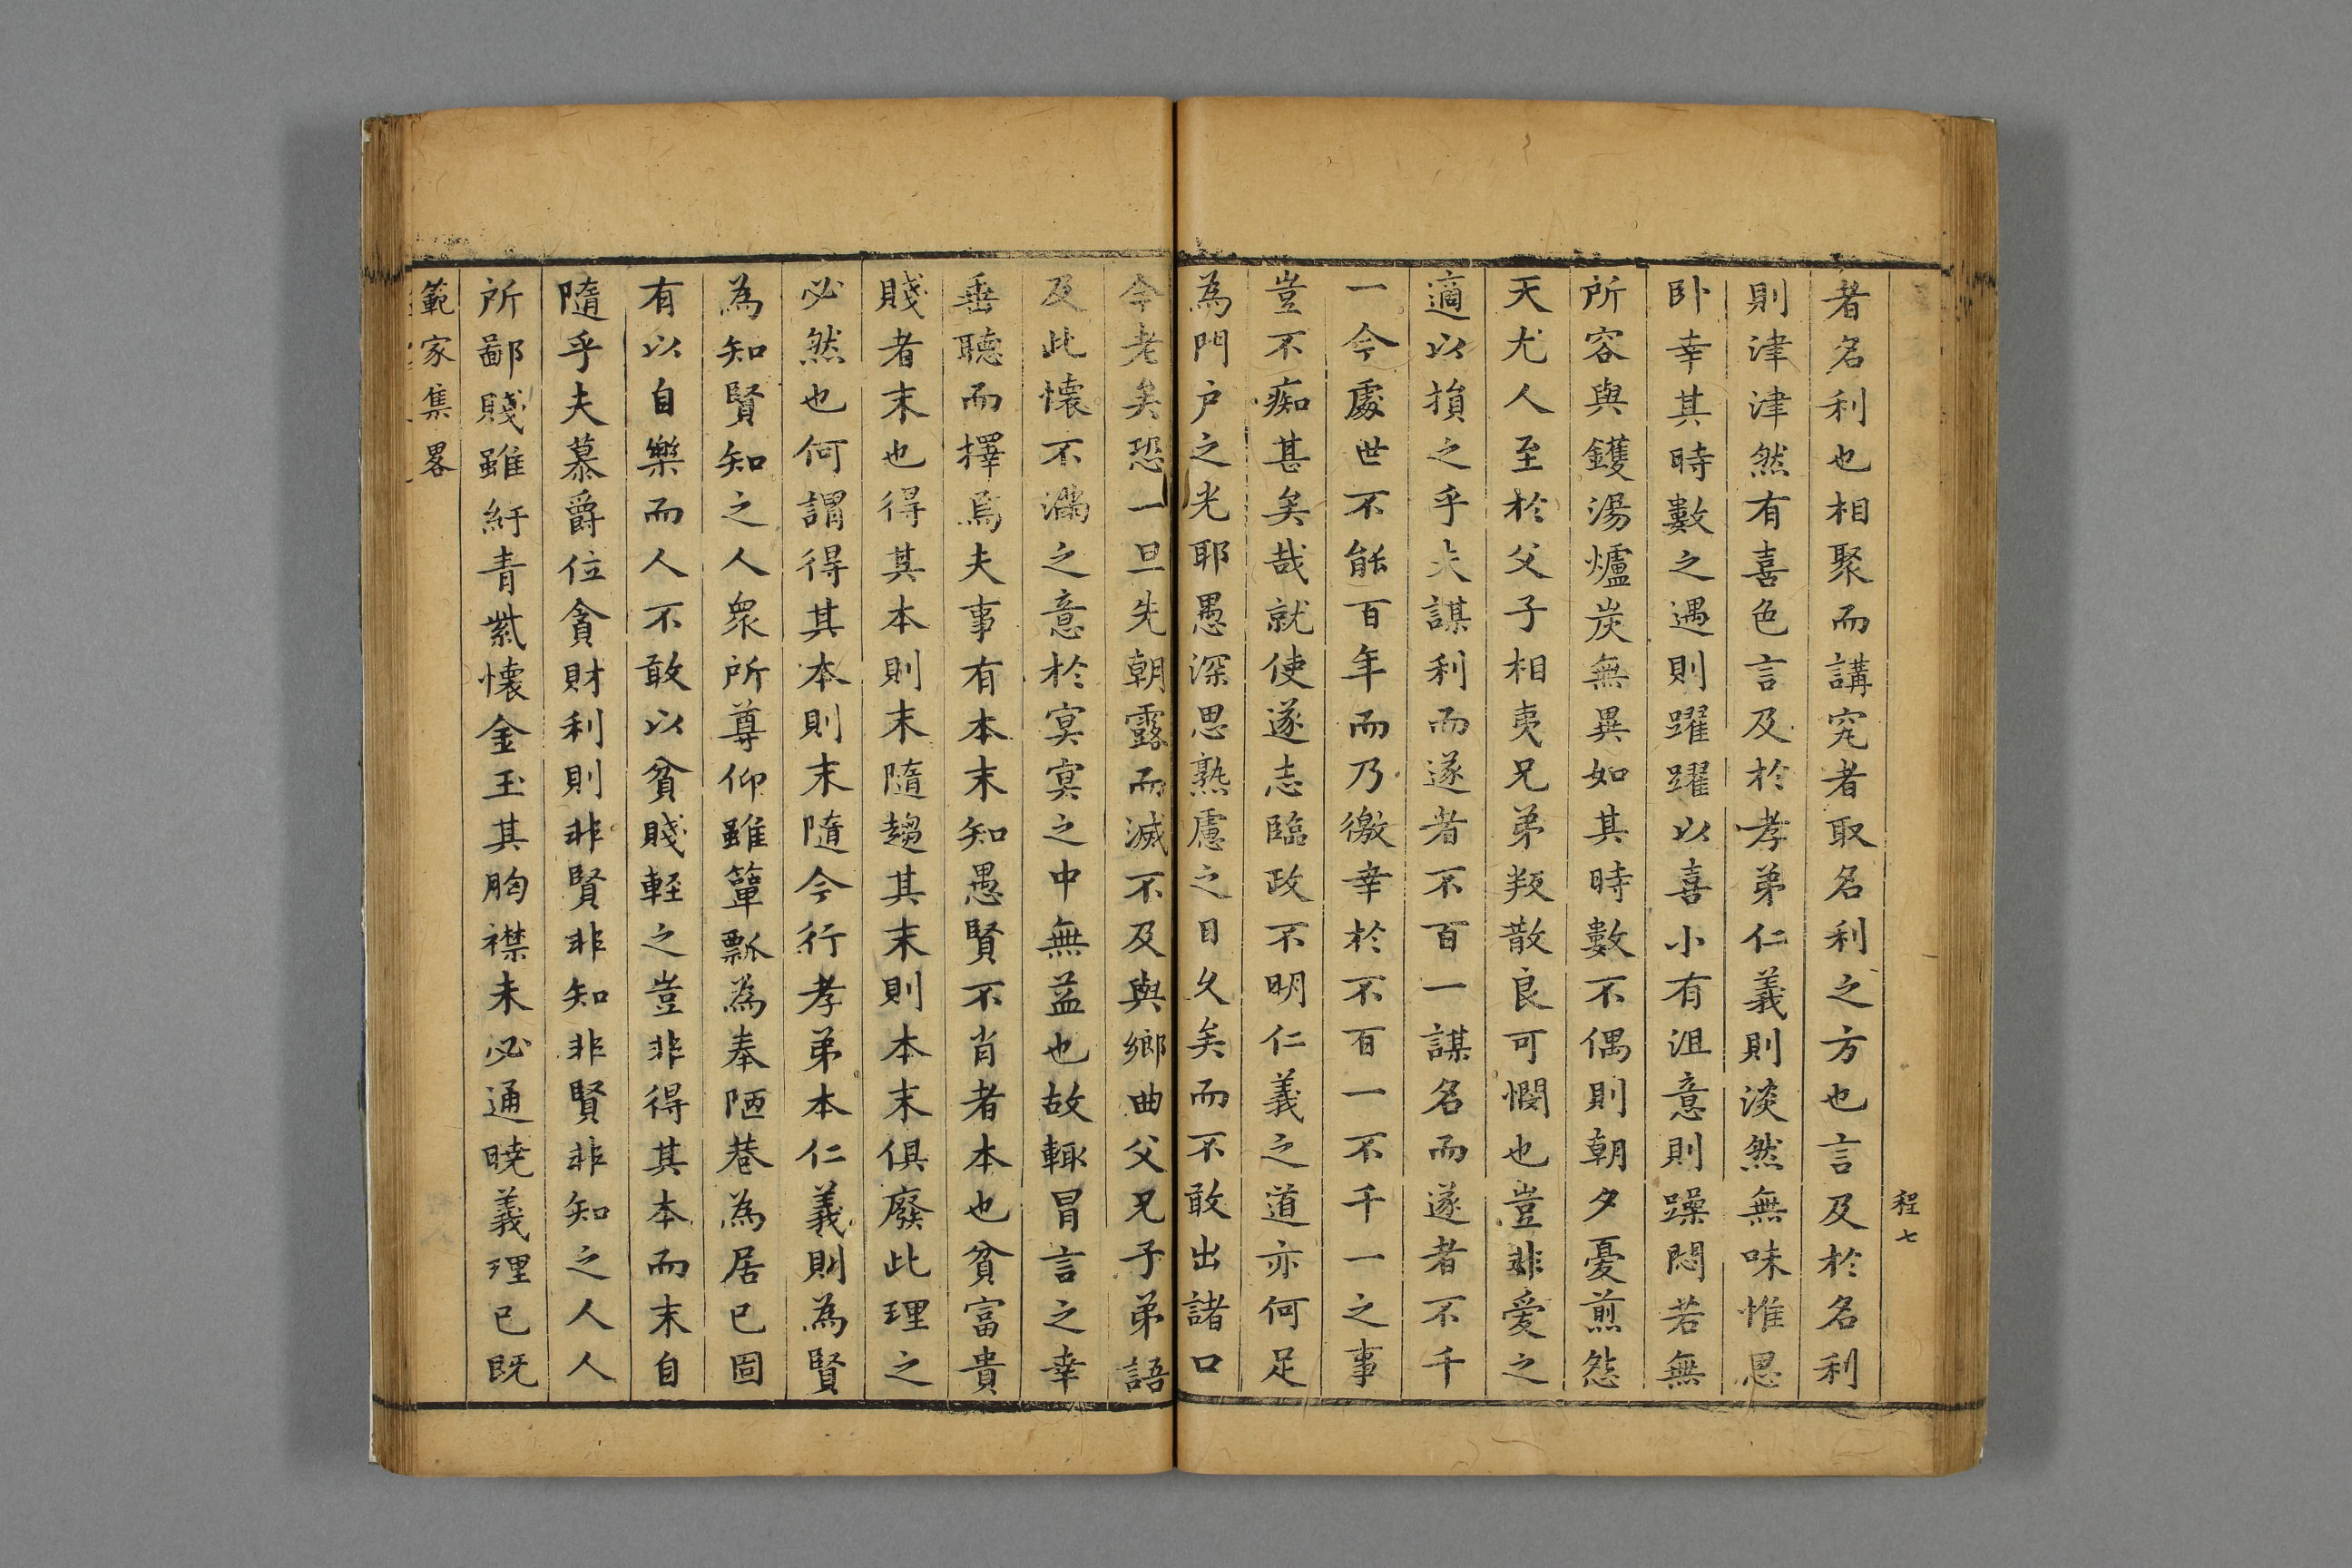 程七
者名利也相聚而講究者取名利之方也言及於名利
則津津然有喜色言及於孝弟仁義則淡然無味惟思
卧幸其時數之遇則躍躍以喜小有沮意則躁悶若無
所容與鑊湯爐炭無異如其時數不偶則朝夕憂煎怨
天尤人至於父子相夷兄弟叛散良可憫也豈非愛之
適以損之乎夫謀利而遂者不百一謀名而遂者不千
一今處世不能百年而乃徼幸於不百一不千一之事
豈不痴甚矣哉就使遂志臨政不明仁義之道亦何足
為門户之光耶愚深思熟慮之日久矣而不敢出諸口
今老矣恐一旦先朝露而滅不及與鄉曲父兄子弟語
及此懷不滿之意於冥冥之中無益也故輙冒言之幸
垂聽而擇焉夫事有本末知愚賢不肖者本也貧富貴
賤者末也得其本則末隨趨其末則本末俱廢此理之
必然也何謂得其本則末隨今行孝弟本仁義則為賢
為知賢知之人衆所尊仰雖簞瓢為奉陋巷為居已固
有以自樂而人不敢以貧賤輕之豈非得其本而末自
隨乎夫慕爵位貪財利則非賢非知非賢非知之人人
所鄙賤雖紆青紫懷金玉其胸襟未必通曉義理已既
範家集畧